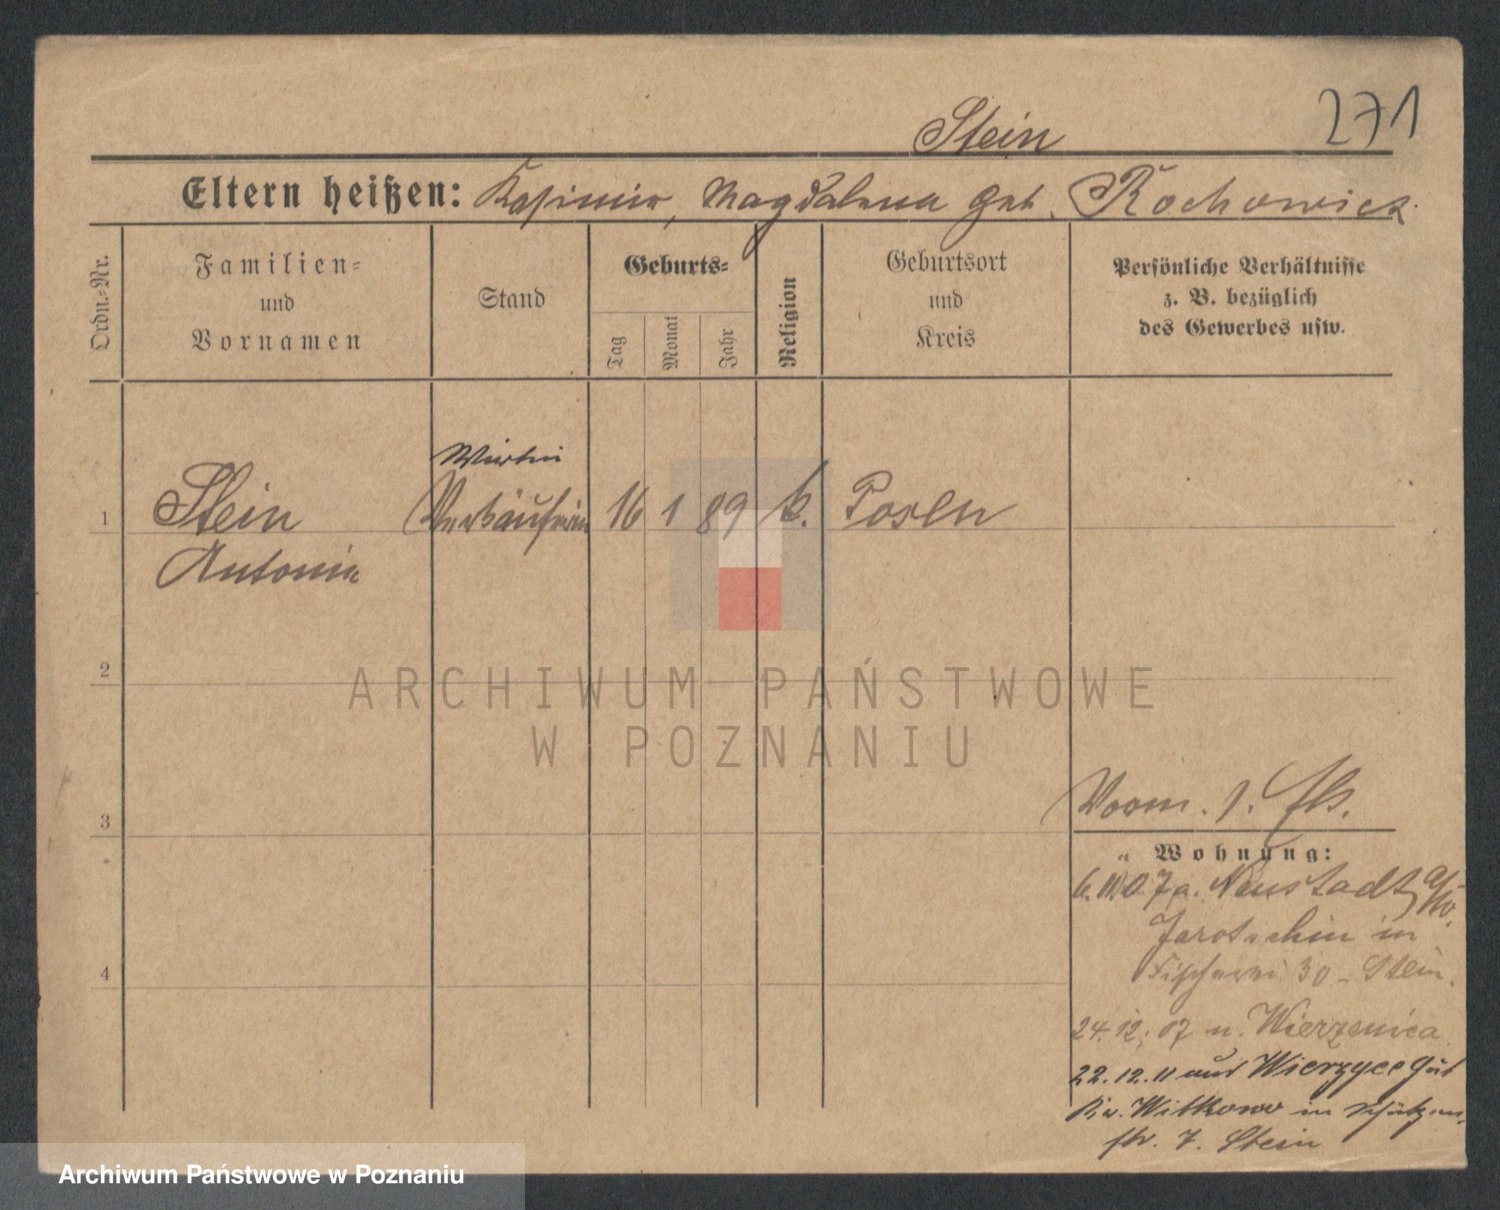 271
Stein
Eltern heißen: Kasimir, Magdalena geb. Rochowicz
Ordn.-Nr.
Familien-
und
Vornamen
Stand
Geburts-
Tag
Monat
Jahr
Religion
Geburtsort
und
Kreis
Persönliche Verhältnisse
z. B. bezüglich
des Gewerbes usw.
Wirtin
1 Stein Verkäuferin 16 1 89 k. Posen
Antonia
2
ARCHIWUM PAŃSTWOWE
W POZNANIU
3
Vorm. 1.
Wohnung:
07 a. Neustadt
Jarotschin in
Fischerei 30 - Stein
24.12.07 n. Wierzenica
22.12.11 aus Wierzyce Gut
Kr. Witkowo in Schützen
str. 7. Stein
4
Archiwum Państwowe w Poznaniu